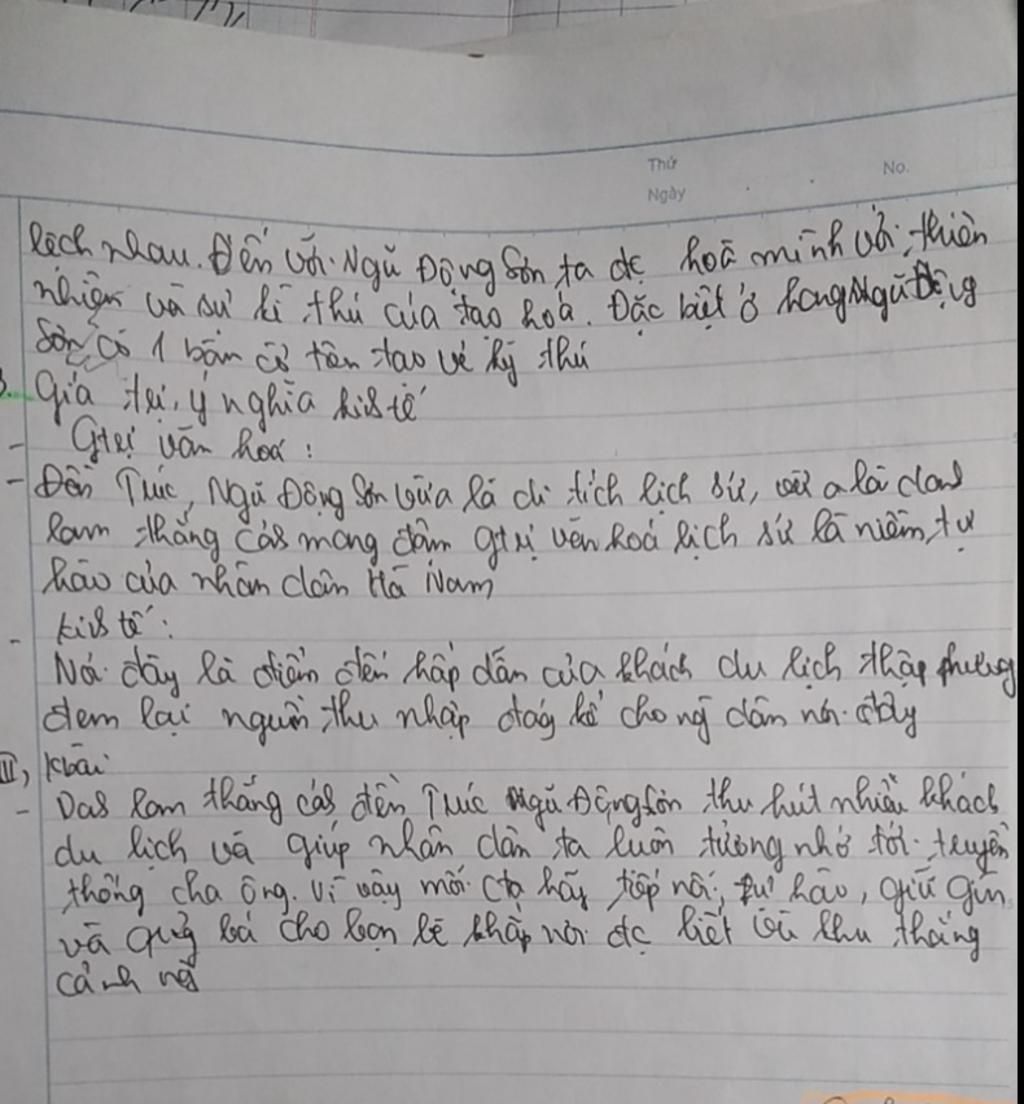 Thứ
No.
Ngày
lệch nhau. Đến với Ngũ Động Sơn ta đc hoà mình với thiên
nhiên và sự kì thú của tạo hoá. Đặc biệt ở hang Ngũ Động
Sơn có 1 bàn cờ tiên tạo vẻ kỳ thú
3. Giá trị, ý nghĩa kinh tế
- Gtrị văn hoá:
- Đền Trúc, Ngũ Động Sơn vừa là di tích lịch sử, vừa là danh
lam thắng cảnh mang đậm gtrị văn hoá lịch sử là niềm tự
hào của nhân dân Hà Nam
- kinh tế:
Nơi đây là điểm đến hấp dẫn của khách du lịch thập phương
đem lại nguồn thu nhập đáng kể cho ng dân nơi đây
III, Kbài
- Danh lam thắng cảnh đền Trúc Ngũ Động Sơn thu hút nhiều khách
du lịch và giúp nhân dân ta luôn tưởng nhớ tới truyền
thống cha ông. Vì vậy mỗi cta hãy tiếp nối, tự hào, giữ gìn
và quảng bá cho bạn bè khắp nơi đc biết về khu thắng
cảnh này